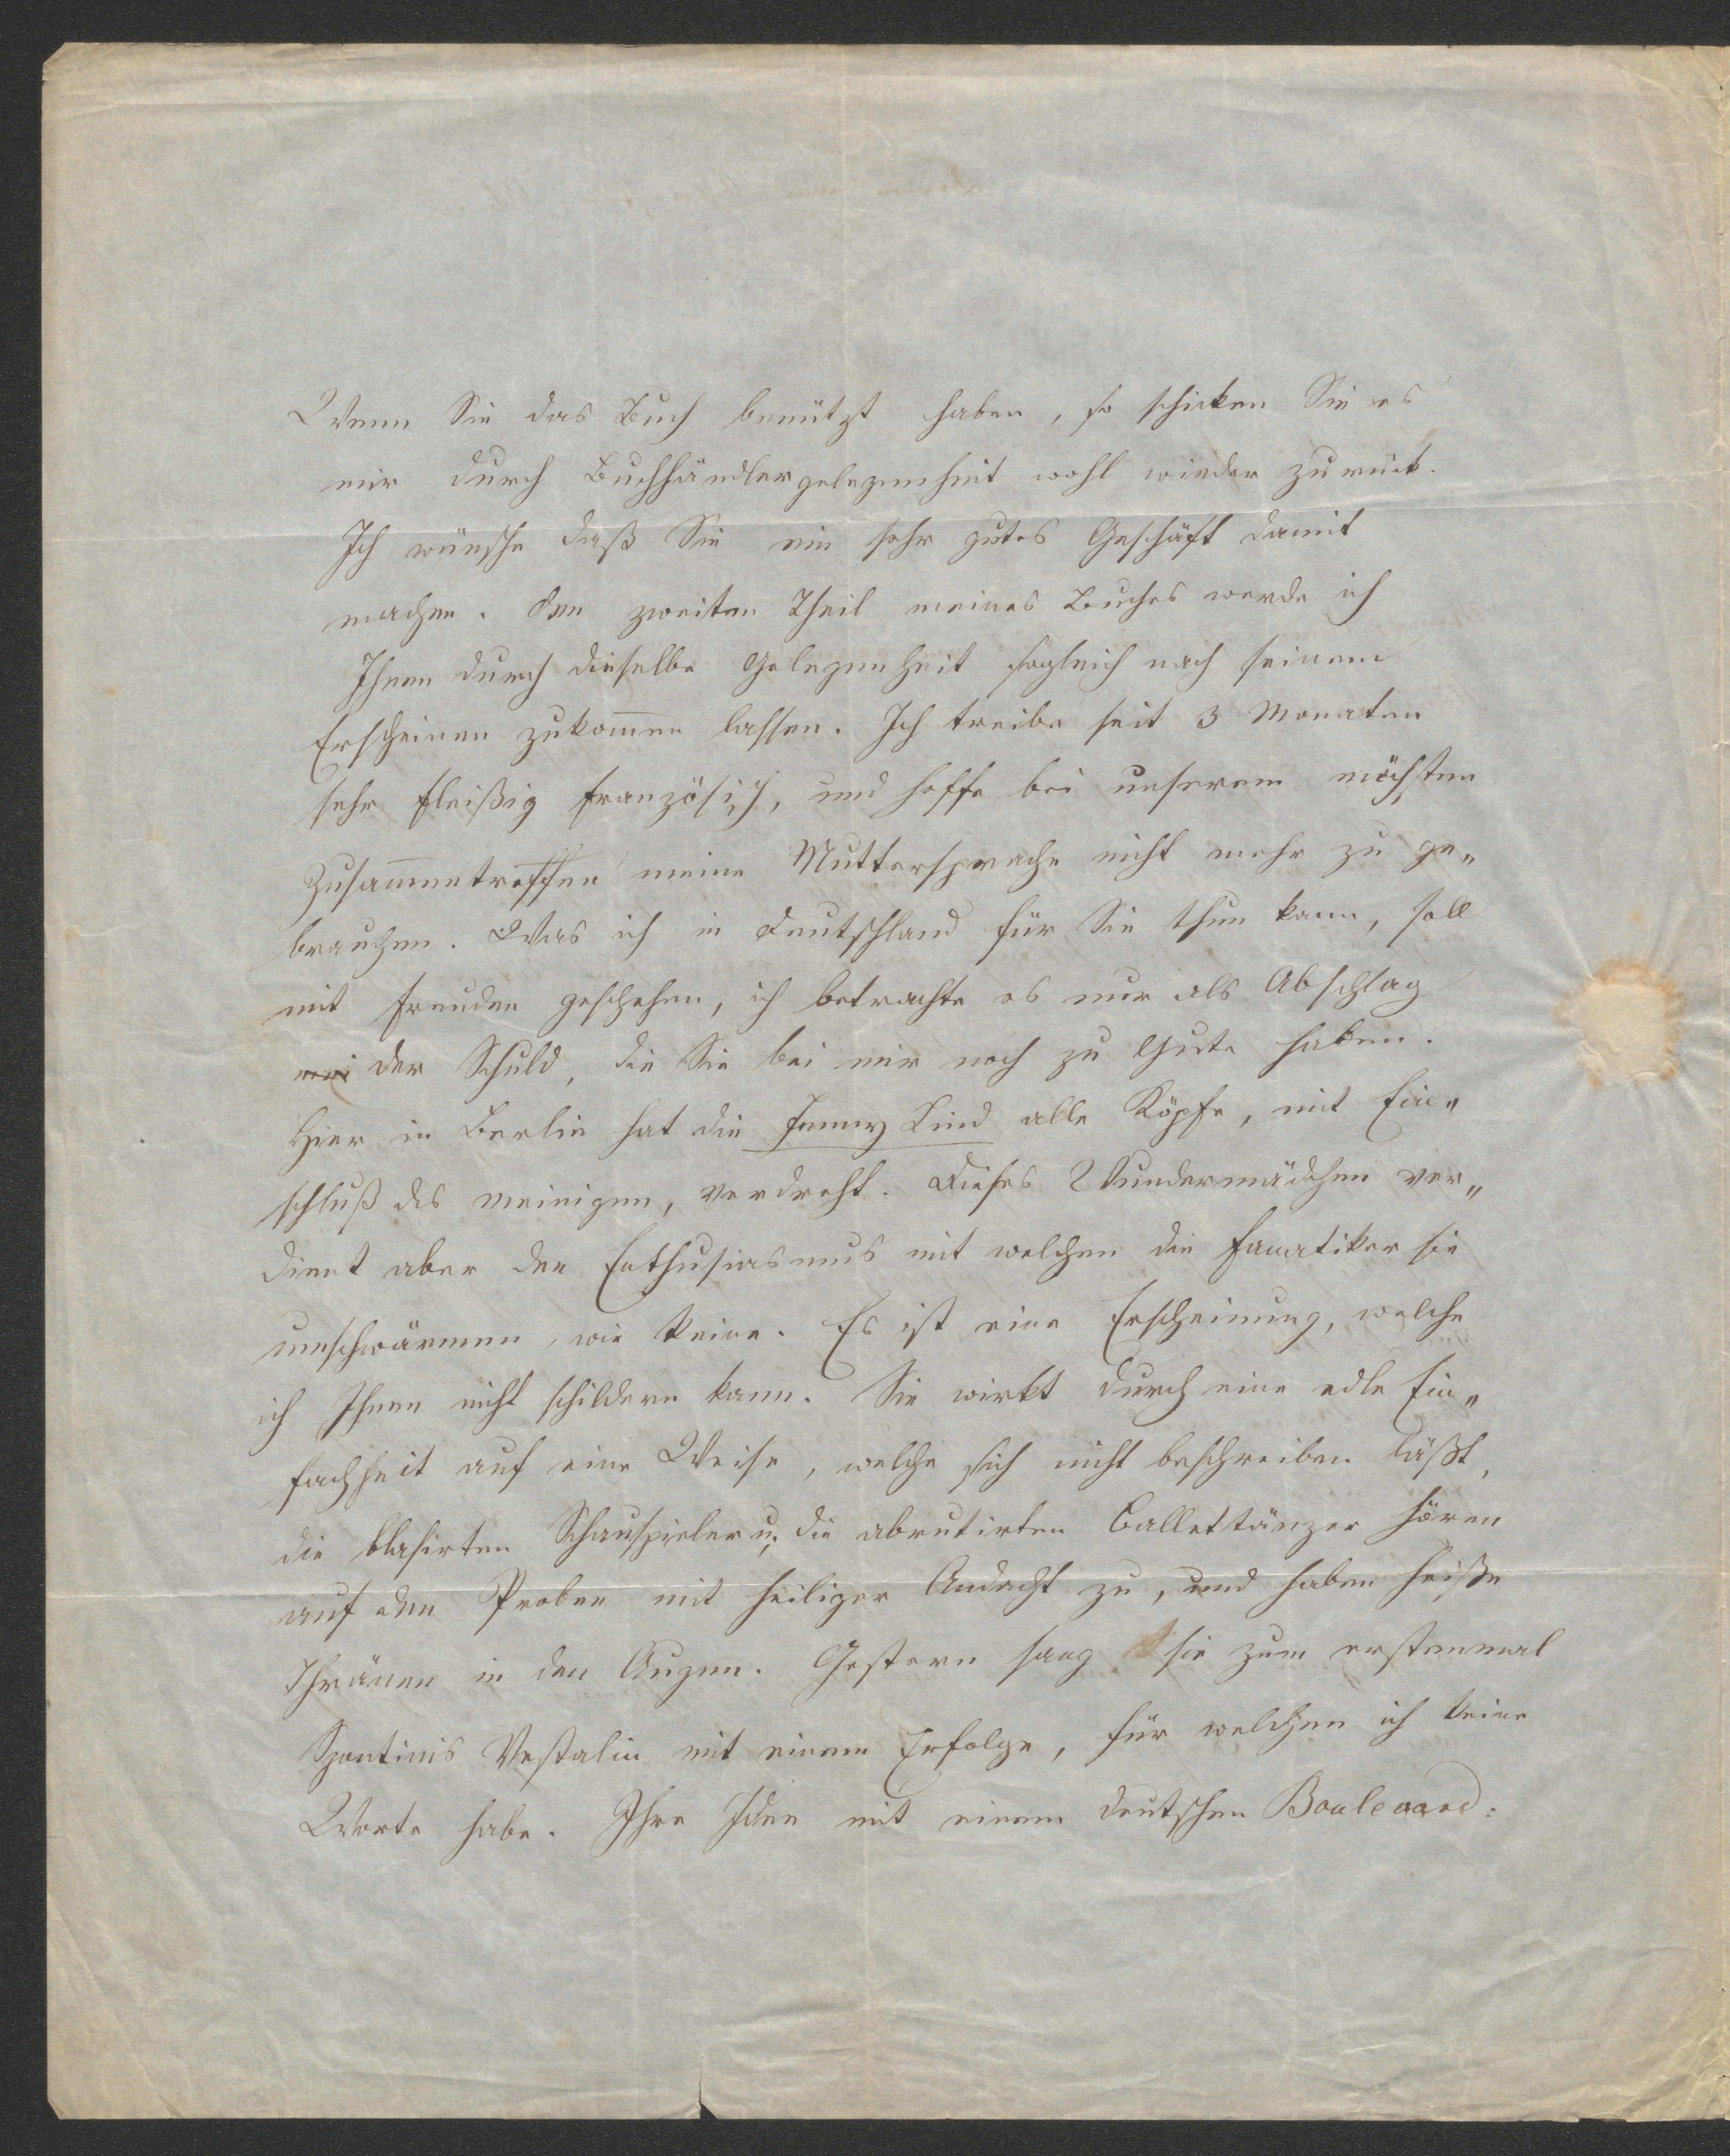 Wenn Sie das Buch benützt haben, so schicken Sie es
mir durch Buchhändlergelegenheit wohl wieder zurück.
Ich wünsche daß Sie ein sehr gutes Geschäft damit
machen. Den zweiten Theil meines Buches werde ich
Ihnen durch dieselbe Gelegenheit sogleich nach seinem
Erscheinen zukom̄en lassen. Ich treibe seit 3 Monaten
sehr fleißig französisch, und hoffe bei unserem nächsten
Zusam̄entreffen meine Muttersprache nicht mehr zu ge„
brauchen. Was ich in Deutschland für Sie thun kann, soll
mit Freuden geschehen, ich betrachte es nur als Abschlag
mei der Schuld, die Sie bei mir noch zu Gute haben.
Hier in Berlin hat die Jenny Lind alle Köpfe, mit Ein„
schluß des meinigen, verdreht. Dieses Wundermädchen ver„
dient aber den Enthusiasmus mit welchen die Fanatiker sie
umschwärmen, wie keine. Es ist eine Erscheinung, welche
ich Ihnen nicht schildern kann. Sie wirkt durch eine edle Ein„
fachheit auf eine Weise, welche sich nicht beschreiben läßt,
die blasirten Schauspieler u. die abrutirten Ballettänzer hören
auf den Proben mit heiliger Andacht zu, und haben heiße
Thränen in den Augen. Gestern sang sie zum erstenmal
Spontinis Vestalin mit einem Erfolge, für welchen ich keine
Worte habe. Ihre Idee mit einem deutschen Boulevard: